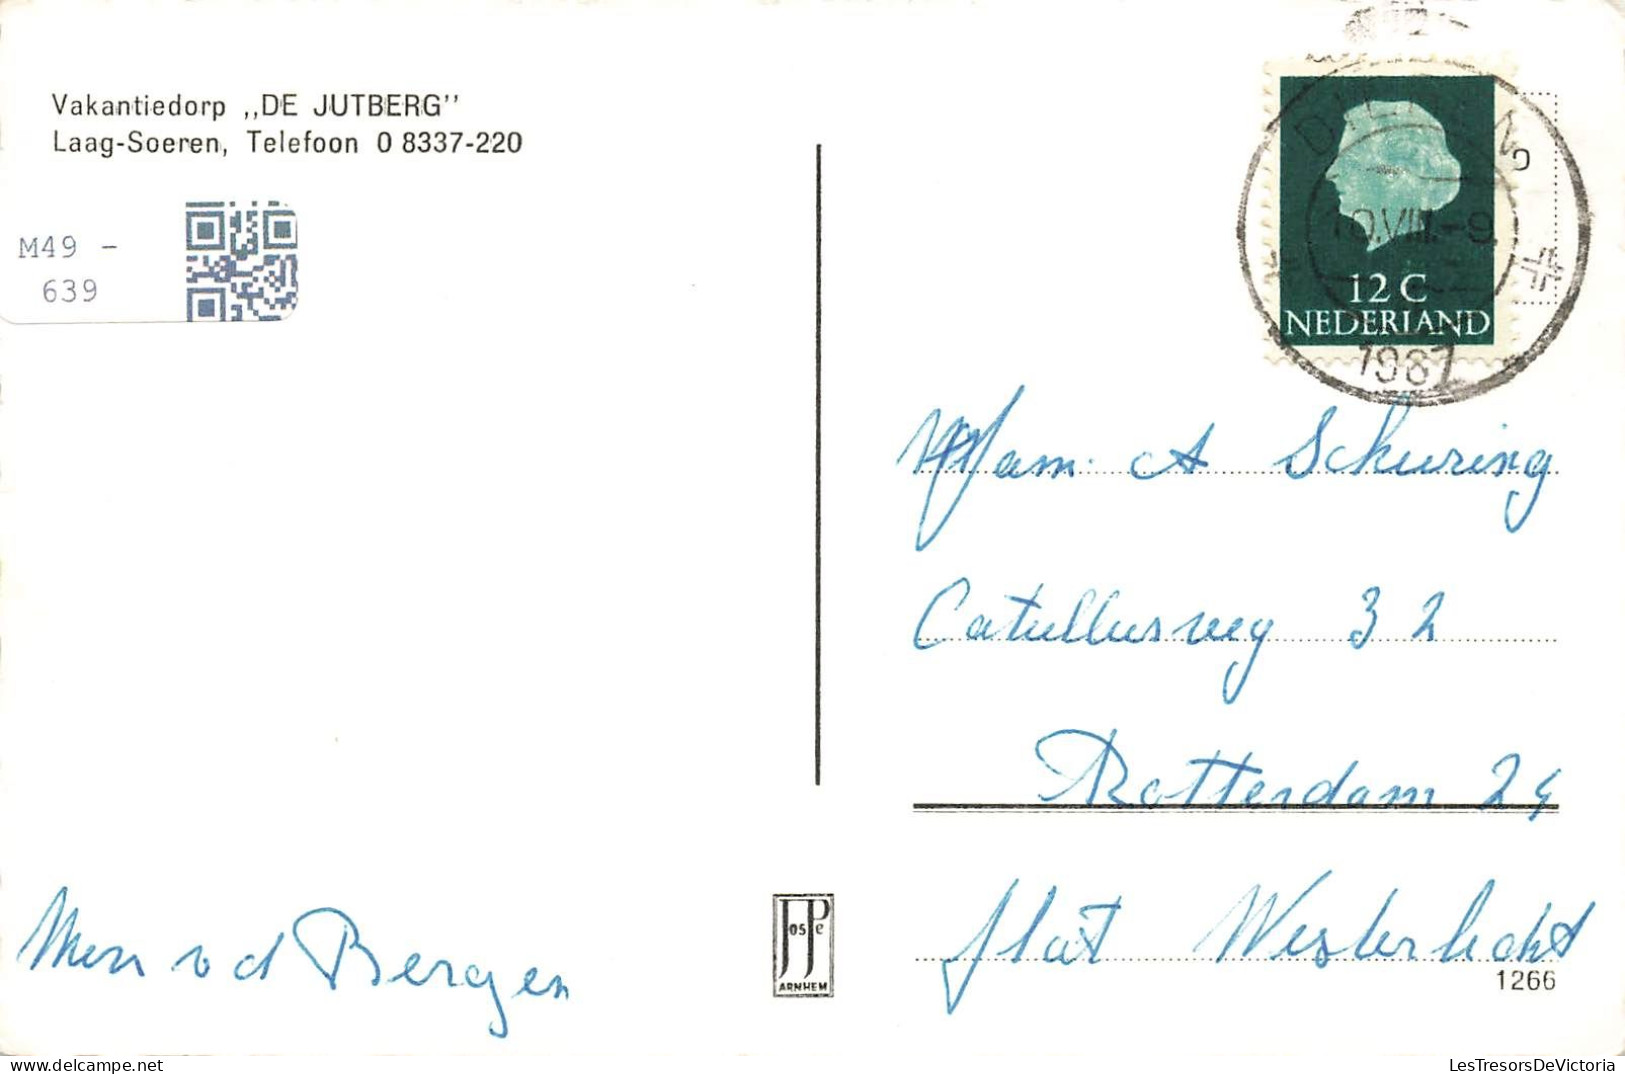 Vakantiedorp ,,DE JUTBERG’’
Laag-Soeren, Telefoon 0 8337-220
M49 -
639
10.VIII.-9.
12 C
NEDERLAND
1967
Fam. A Schuring
Catullusweg 32
Rotterdam 24
flat Westerlicht
1266
v d Bergen
JosPe
ARNHEM
LesTresorsDeVictoria